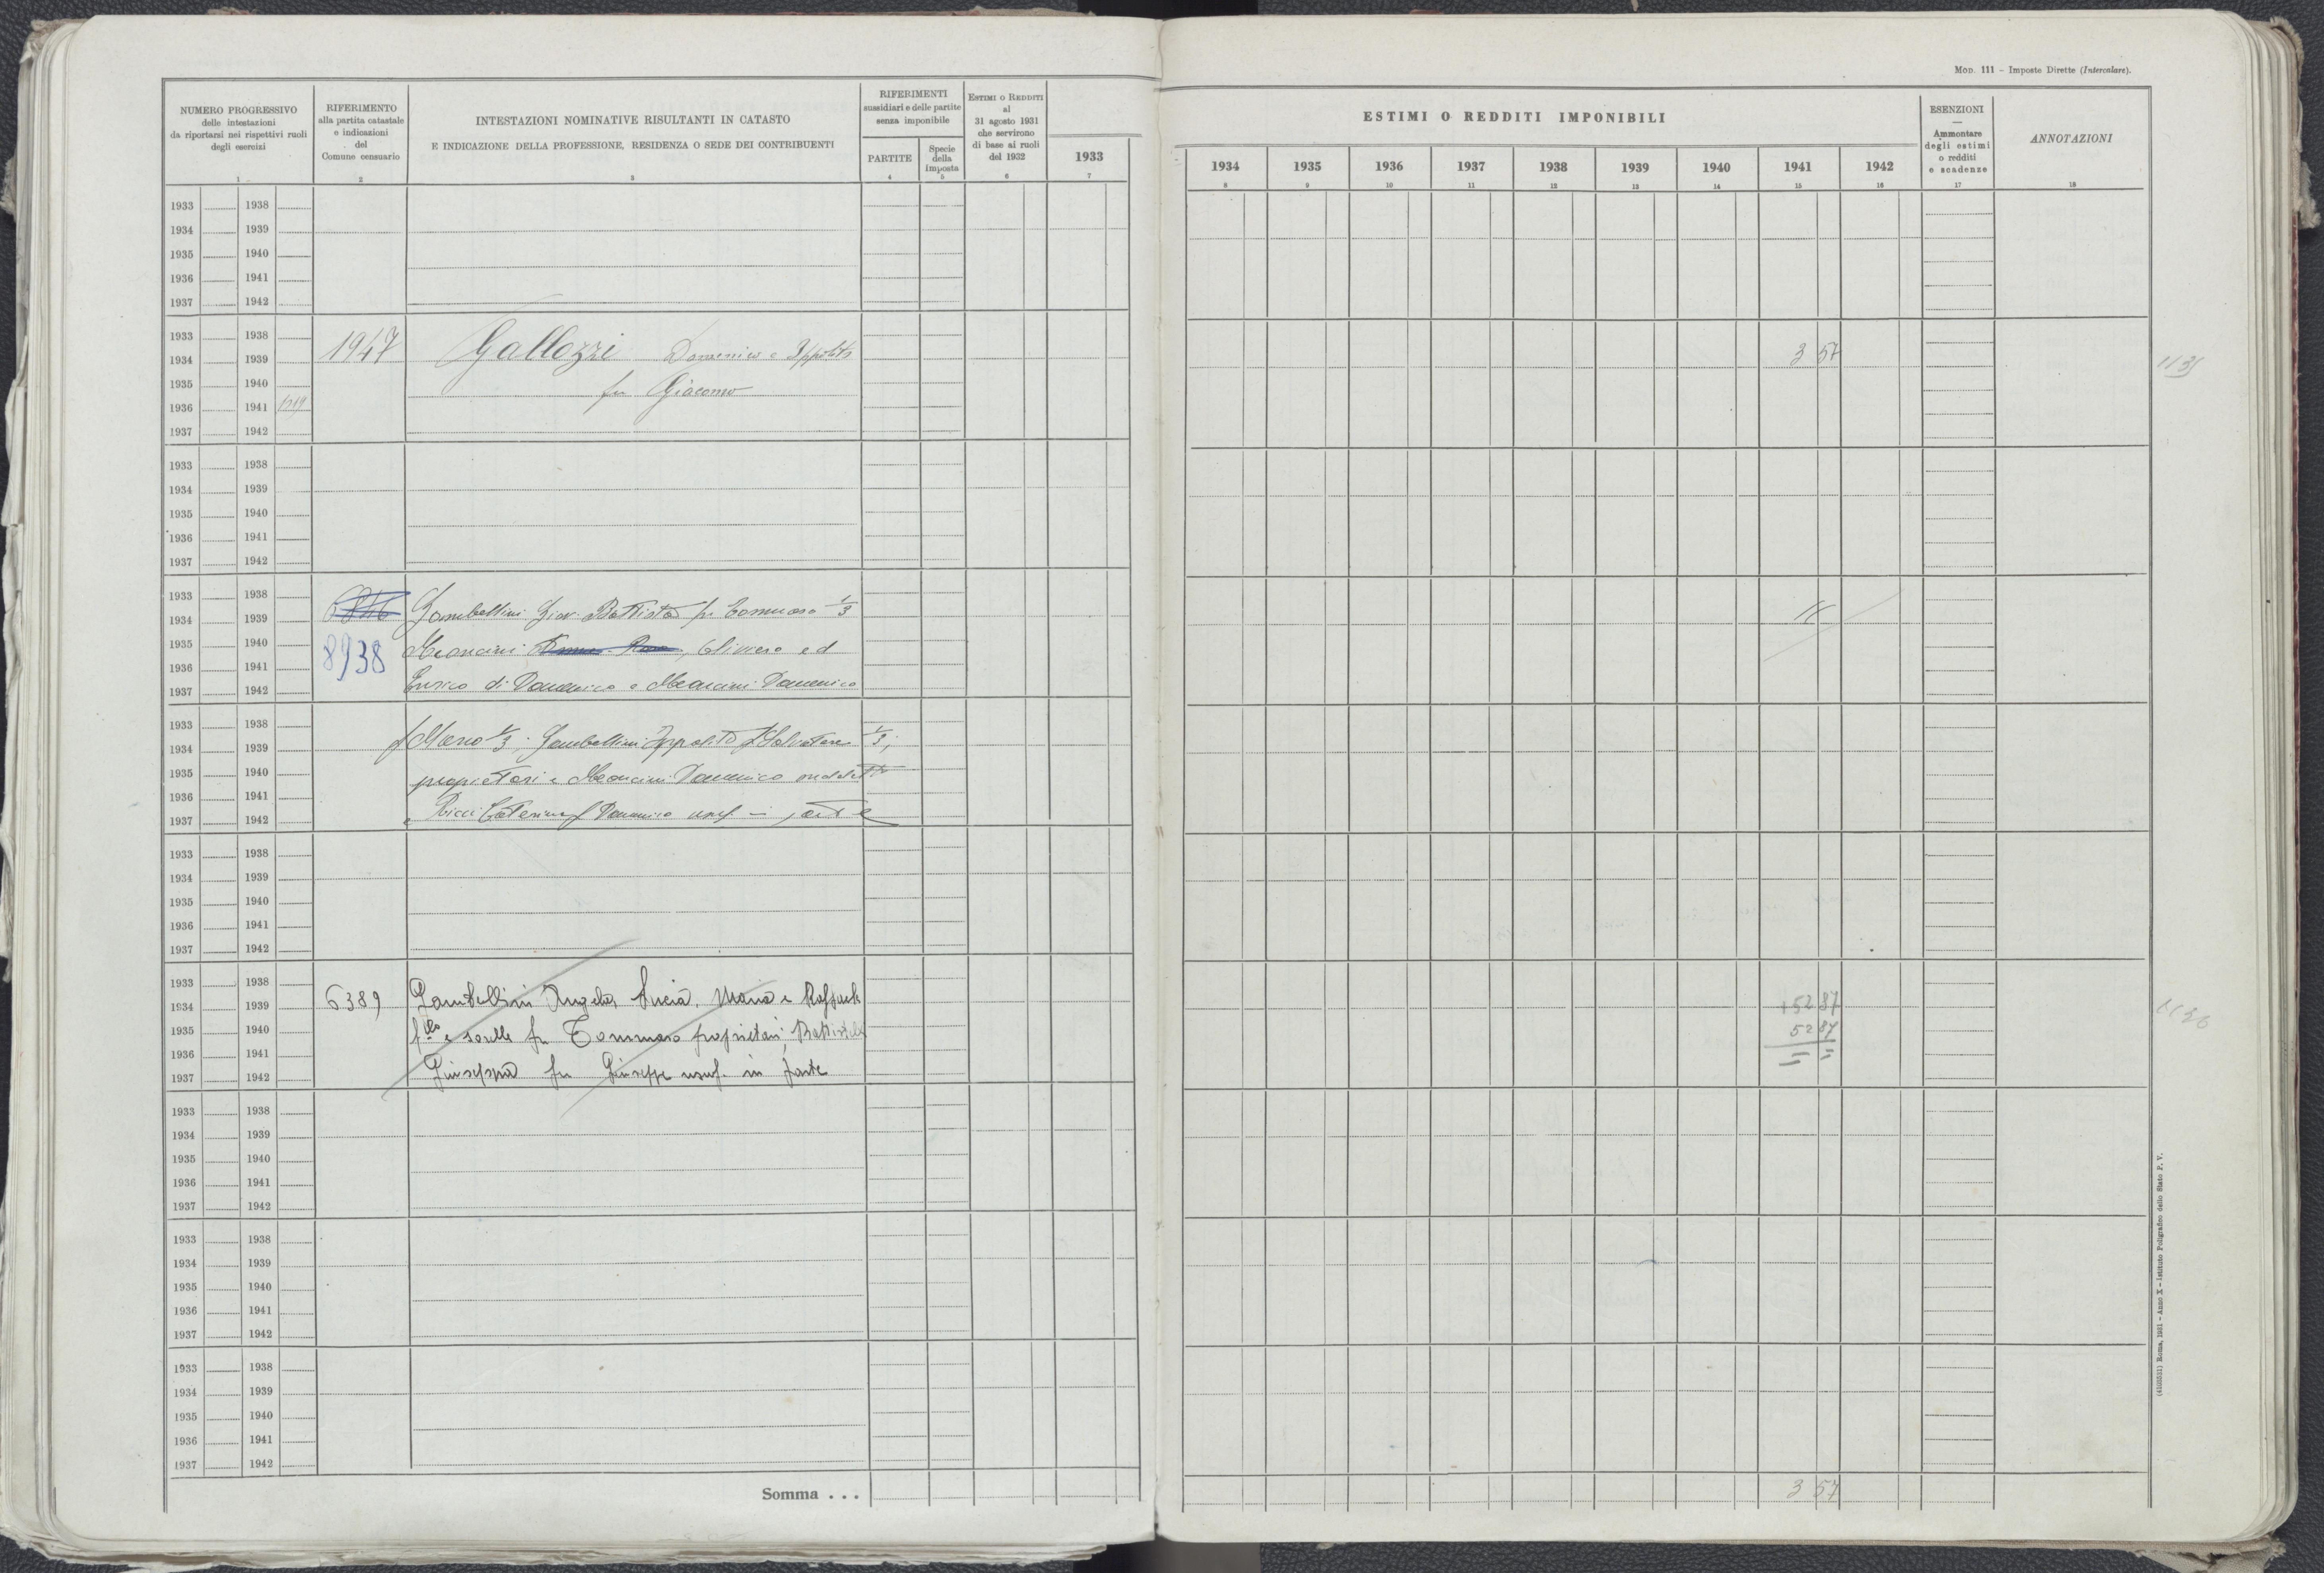 Mod. 111 - Imposte Dirette (Intercalare).
NUMERO PROGRESSIVO
delle intestazioni
da riportarsi nei rispettivi ruoli
degli esercizi
1
RIFERIMENTO
alla partita catastale
e indicazioni
del
Comune censuario
2
INTESTAZIONI NOMINATIVE RISULTANTI IN CATASTO
E INDICAZIONE DELLA PROFESSIONE, RESIDENZA O SEDE DEI CONTRIBUENTI
3
RIFERIMENTI
sussidiari e delle partite
senza imponibile
PARTITE
4
Specie
della
imposta
5
ESTIMI O REDDITI
al
31 agosto 1931
che servirono
di base ai ruoli
del 1932
6
1933
7
ESTIMI O REDDITI IMPONIBILI
1934 1935 1936 1937 1938 1939 1940 1941 1942
8 9 10 11 12 13 14 15 16
ESENZIONI
—
Ammontare
degli estimi
o redditi
e scadenze
17
ANNOTAZIONI
18
1933 1938
1934 1939
1935 1940
1936 1941
1937 1942
1933 1938
1934 1939 1947 Gallozzi Domenico e Ippolito 3 57 1135
1935 1940 fu Giacomo
1936 1941 1219
1937 1942
1933 1938
1934 1939
1935 1940
1936 1941
1937 1942
1933 1938
1934 1939 Gambellini Giov. Battista fu Tommaso 1/3
1935 1940 8938 Mancini Oliviero ed
1936 1941
1937 1942 Enrico di Domenico e Mancini Domenico
1933 1938
1934 1939 1/3; Gambellini Ippolito f Salvatore 1/3;
1935 1940 proprietari e Mancini Domenico
1936 1941
1937 1942 e Ricci Caterina f Domenico usuf in parte
1933 1938
1934 1939
1935 1940
1936 1941
1937 1942
1933 1938
1934 1939 6389 Gambellini Angela, Lucia, Maria e Raffaele +52 87 1136
1935 1940 f.llo e sorelle fu Tommaso proprietari; Battistelli 52 87
1936 1941 = =
1937 1942 Giuseppa fu Giuseppe usuf. in parte
1933 1938
1934 1939
1935 1940
1936 1941
1937 1942
1933 1938
1934 1939
1935 1940
1936 1941
1937 1942
1933 1938
1934 1939
1935 1940
1936 1941
1937 1942
Somma . . . 3 57
Roma, 1931 - Anno X - Istituto Poligrafico dello Stato P. V.